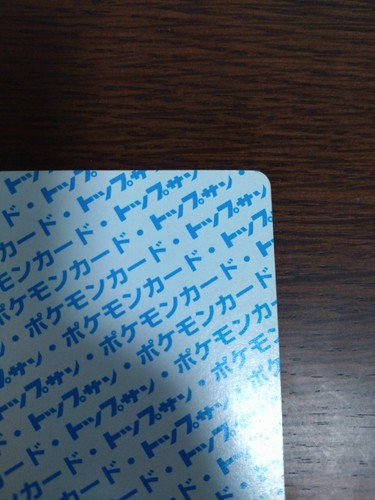 トップサン・
ド・トップサン・
カード・トップサン・ト
モンカード・トップサン
ポケモンカード・ト
・ポケモンカード・
・ポケモンカード
ン・ポケモンカード
サン・ポケモン
トップサン・ポケ
・トップサン・
ード・トップサン
カード・トップ